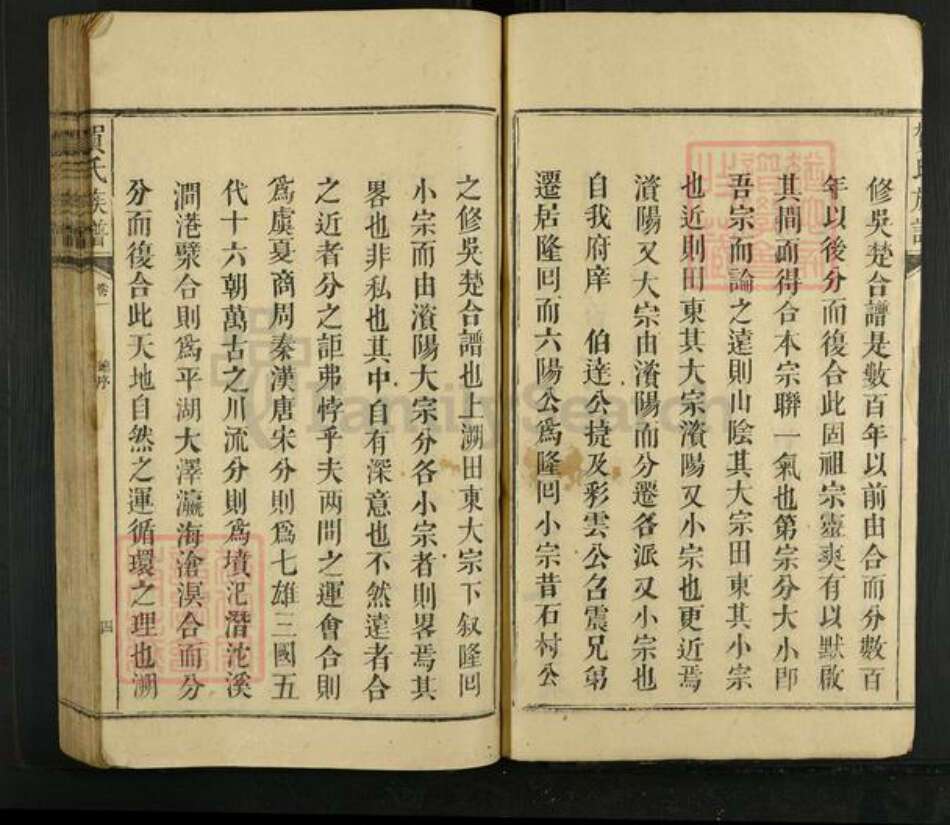 修吳楚合譜是數百年以前由合而分數百
年以後分而復合此固祖宗靈爽有以默啟
其間而得合本宗聯一氣也第宗分大小卽
吾宗而論之遠則山陰其大宗田東其小宗
也近則田東其大宗濱陽又小宗也更近焉
濱陽又大宗由濱陽而分遷各派又小宗也
自我府庠 伯達公㨗及彩雲公台震兄弟
遷居隆回而六陽公爲隆回小宗昔石村公
賀氏族譜
卷一
四
之修吳楚合譜也上溯田東大宗下叙隆回
小宗而由濱陽大宗分各小宗者則畧焉其
畧也非私也其中自有深意也不然遠者合
之近者分之詎弗悖乎夫两間之運會合則
爲虞夏商周秦漢唐宋分則爲七雄三國五
代十六朝萬古之川流分則爲墳汜潛沱溪
澗港檗合則爲平湖大澤瀛海滄溟合而分
分而復合此天地自然之運循環之理也溯
FamilySearch